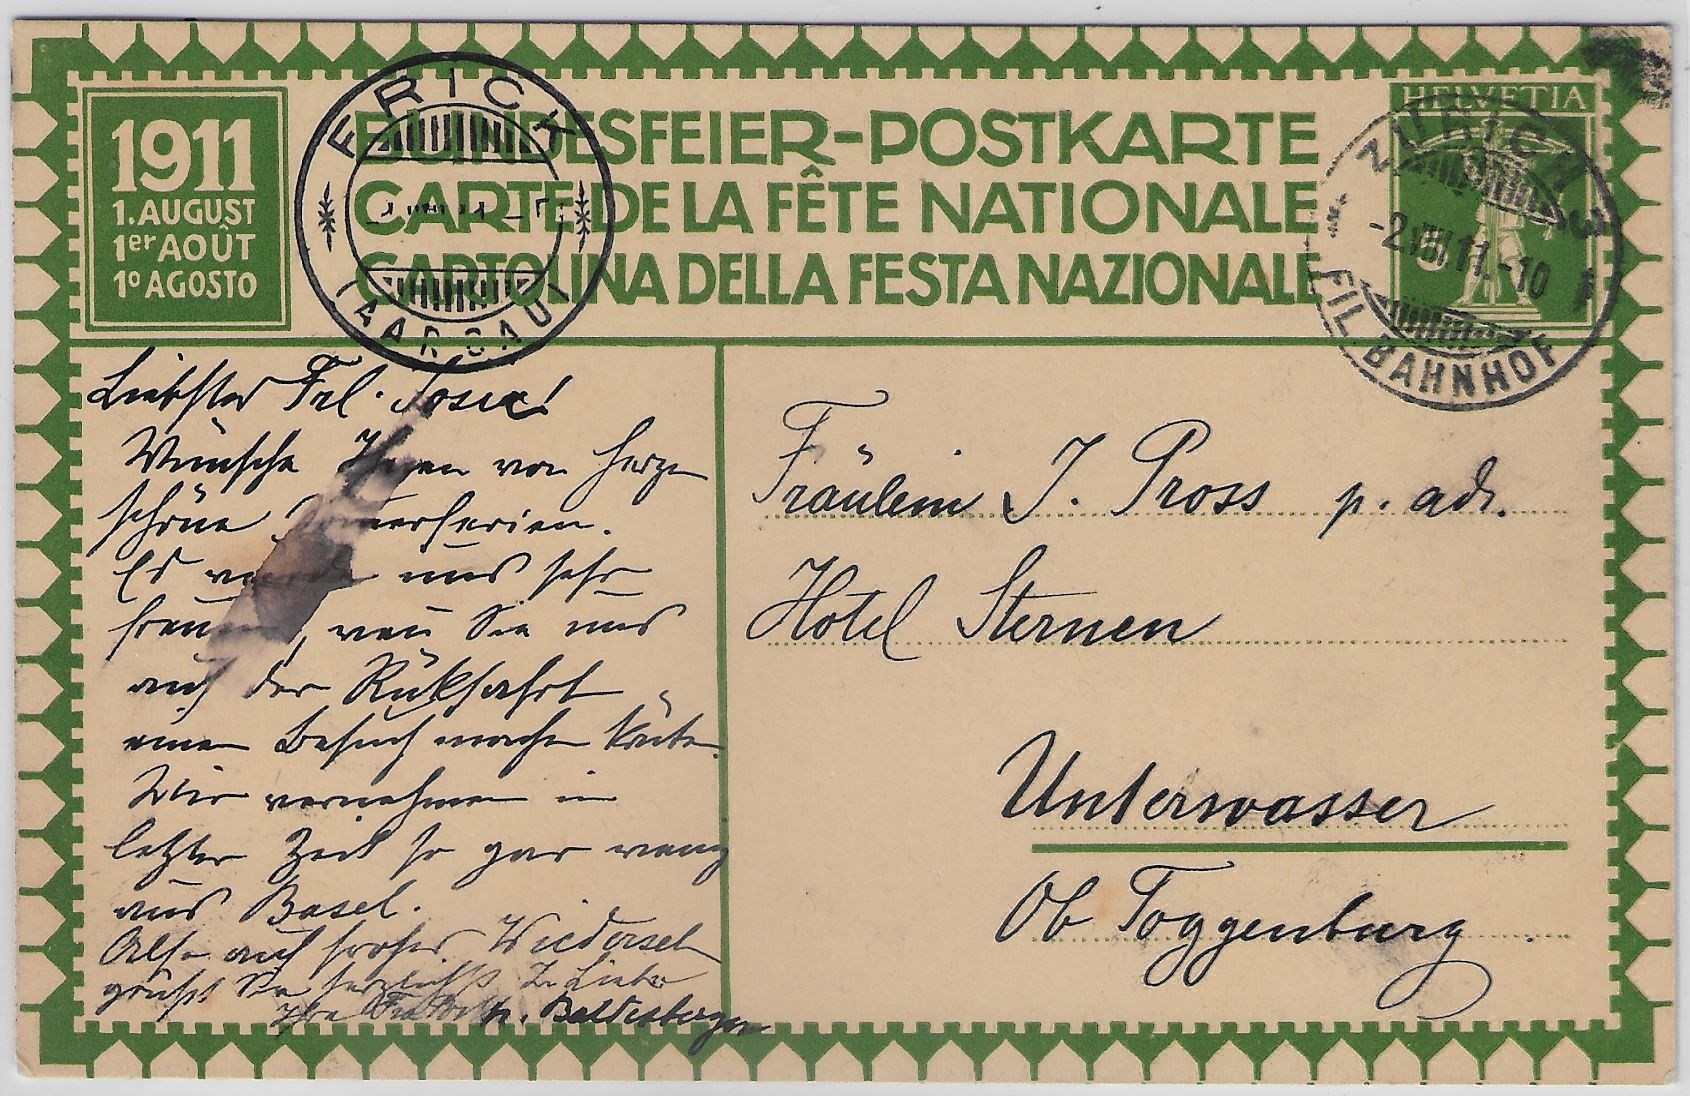 1911
1. AUGUST
1er AOÛT
1º AGOSTO
BUNDESFEIER-POSTKARTE
CARTE DE LA FÊTE NATIONALE
CARTOLINA DELLA FESTA NAZIONALE
HELVETIA
5
FRICK
(AARGAU)
ZÜRICH 3
-2.VIII.11.-10
FIL. BAHNHOF
Liebster Frl. Josie!
Wünsche Ihnen von Herzen
schöne Sommerferien.
Es würde uns sehr
freuen, wen̄ Sie uns
auf der Rükfahrt
einen Besuch machen könten.
Wir vernehmen in
letzter Zeit so gar wenig
aus Basel.
Also auf frohes Wiederseh
grüßt Sie herzlichst
Ihre
Fräulein J. Pross p. adr.
Hotel Sternen
Unterwasser
Ob Toggenburg